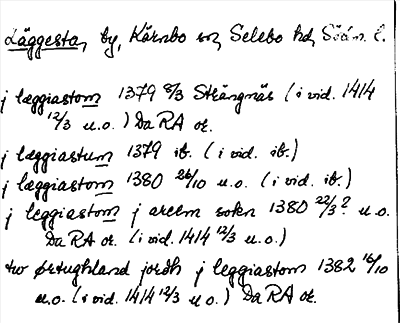 Läggesta, by, Kärnbo sn, Selebo hd, Södm. l.
j læggiastom 1379 8/3 Strängnäs (i vid. 1414
12/3 u.o.) Da RA or.
j læggiastum 1379 ib. (i vid. ib.)
j læggiastom 1380 26/10 u.o. (i vid. ib.)
j leggiastom j arem sokn 1380 22/3? u.o.
Da RA or. (i vid. 1414 12/3 u.o.)
tw ørtughland jordh j leggiastom 1382 16/10
u.o. (i vid. 1414 12/3 u.o.) Da RA or.